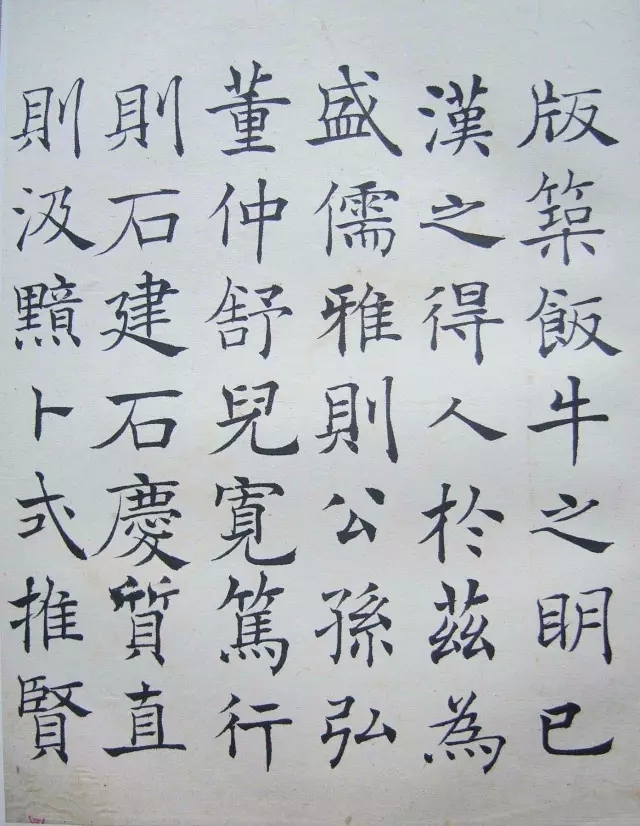 版築飯牛之明已
漢之得人於茲為
盛儒雅則公孫弘
董仲舒兒寬篤行
則石建石慶質直
則汲黯卜式推賢